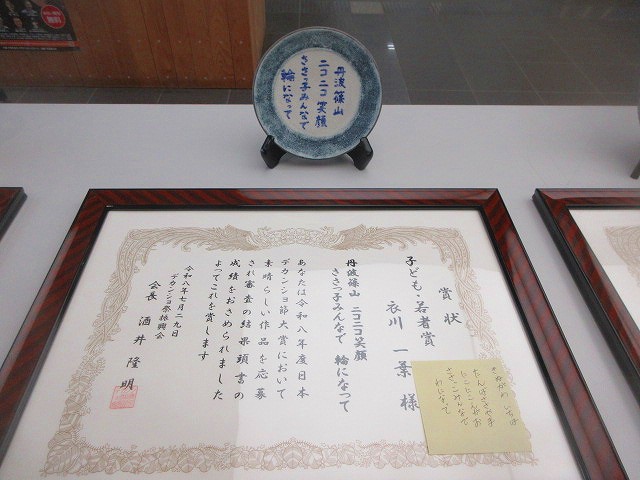 丹波篠山
ニコニコ 笑顔
ささっ子みんなで
輪になって
賞状
子ども・若者賞
衣川 一葉 様
丹波篠山 ニコニコ笑顔
ささっ子みんなで 輪になって
あなたは令和八年度日本
デカンショ節大賞において
素晴らしい作品を応募
され審査の結果頭書の
成績をおさめられました
よってこれを賞します
令和八年七月二九日
デカンショ祭振興会
会長 酒井 隆明
きぬがわ いちは
たんばささやま
にこにこえがお
ささっこみんなで
わになって